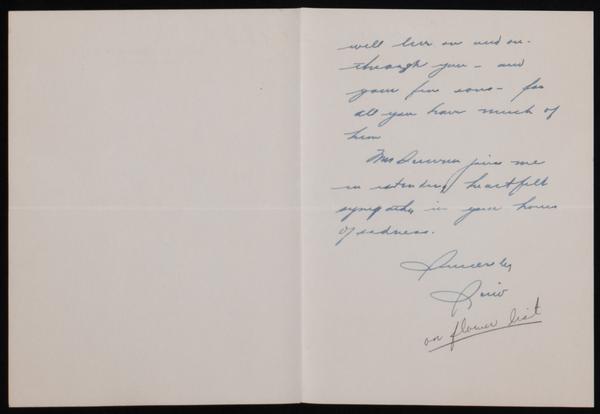 will live on and on.
through you - and
your fine sons - for
all you have much of
him
Mrs joins me
in extending heartfelt
sympathy in your hours
of sadness.
Sincerely
on flower list